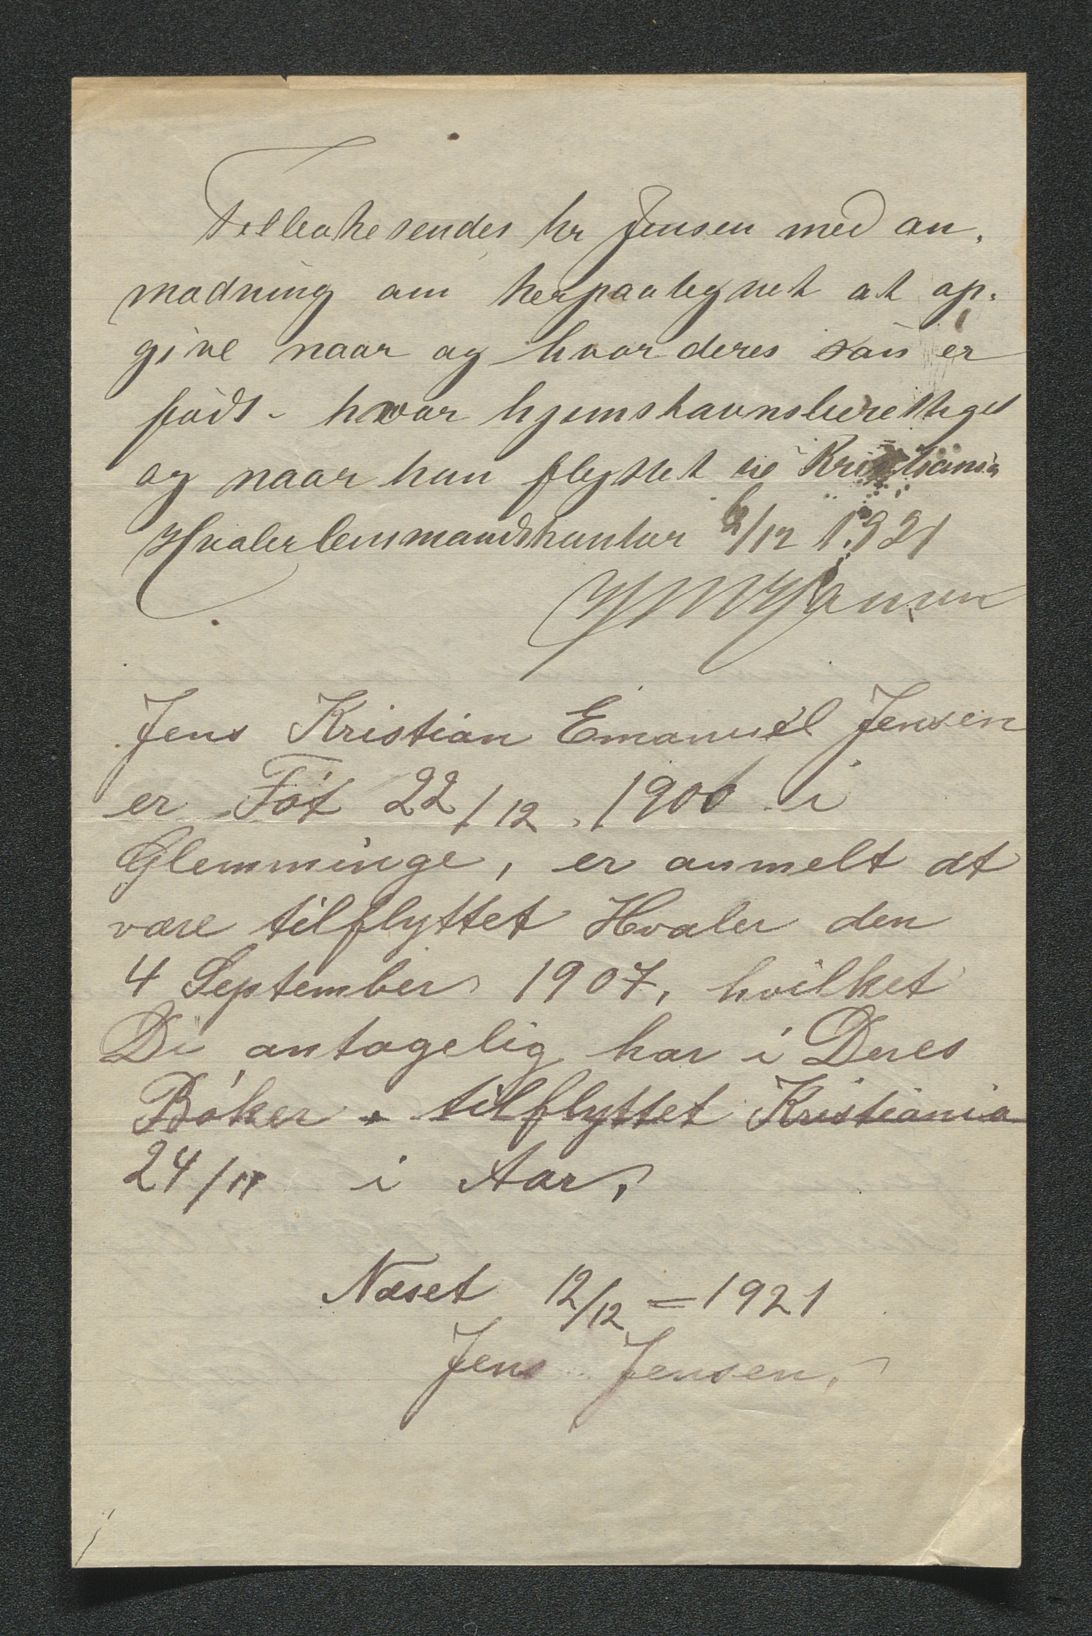 Tilbakesendes hr Jensen med an-
modning om herpaategnet at op-
give naar og hvor deres søn er
født - hvor hjemstavnsberettiget
og naar han flyttet til Kristiania
Hvaler lensmandskontor 6/12 1921
Jens Kristian Emanuel Jensen
er Føt 22/12. 1906 i
Glemminge, er anmelt at
være tilflyttet Hvaler den
4 September 1907, hvilket
Di antagelig har i Deres
Bøker. tilflyttet Kristiania
24/11 i Aar,
Næset 12/12 = 1921
Jens Jensen,